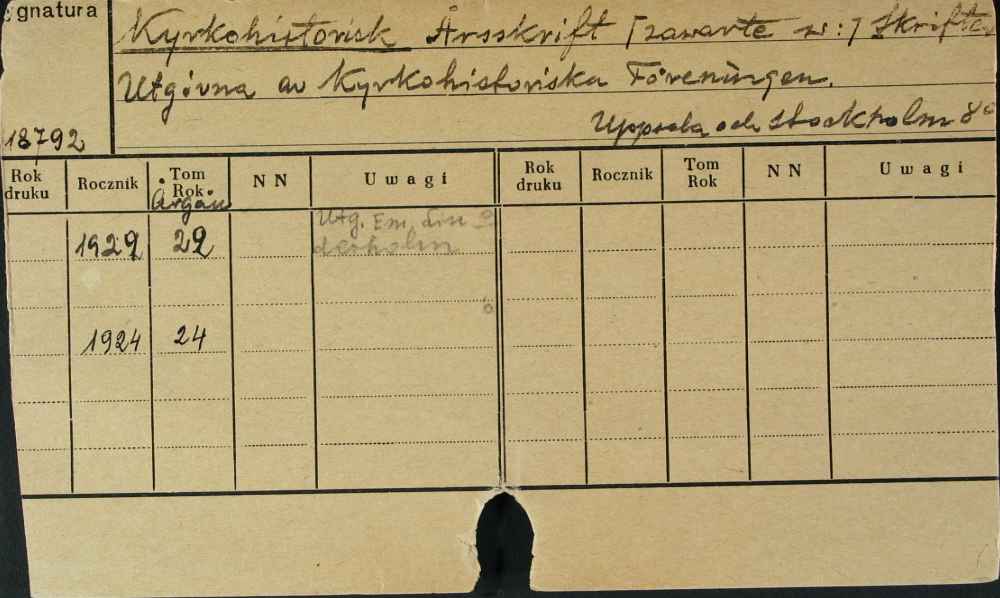 gnatura
Kyrkohistorisk Årsskrift [zawarte w:] Skrifter
Utgivna av Kyrkohistoriska Föreningen.
18792
Uppsala och Stockholm 8°
Rok druku Rocznik Tom Rok NN Uwagi Rok druku Rocznik Tom Rok NN Uwagi
Årgån
1929 29 Utg. Em. Lin
derholm
1924 24